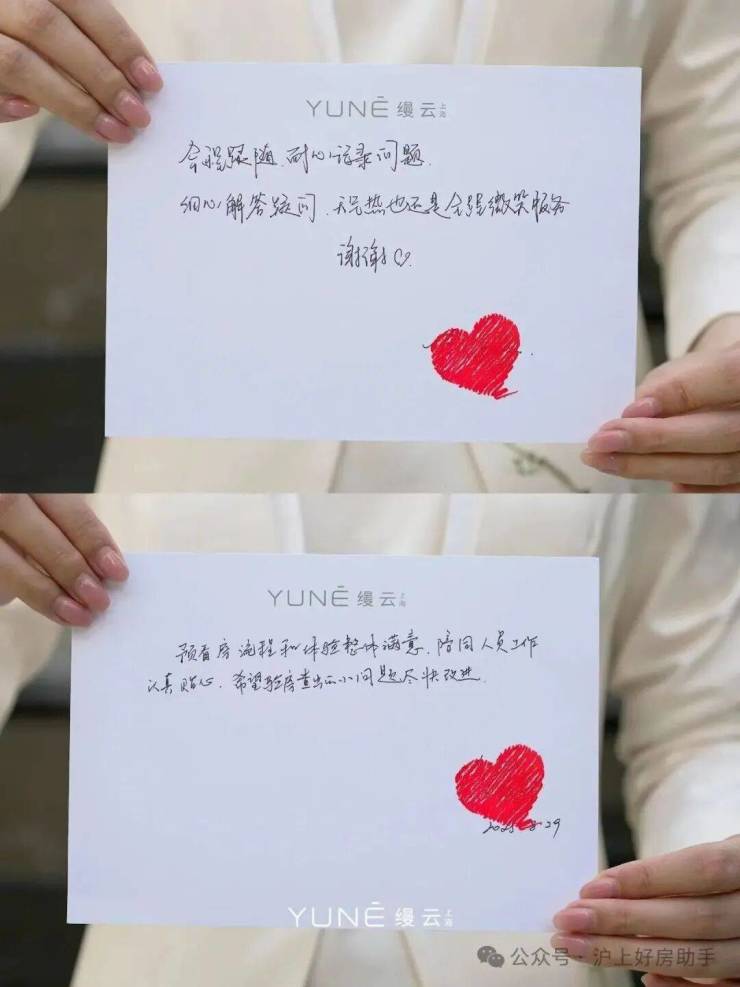 YUNÉ 缦云 上海
全程跟随、耐心记录问题
细心解答疑问、天气热也还是全程微笑服务
谢谢♡
YUNÉ 缦云 上海
预看房流程和体验整体满意,陪同人员工作
认真贴心,希望验房查出的小问题尽快改进
2025-8-29
YUNÉ 缦云 上海
公众号·沪上好房助手